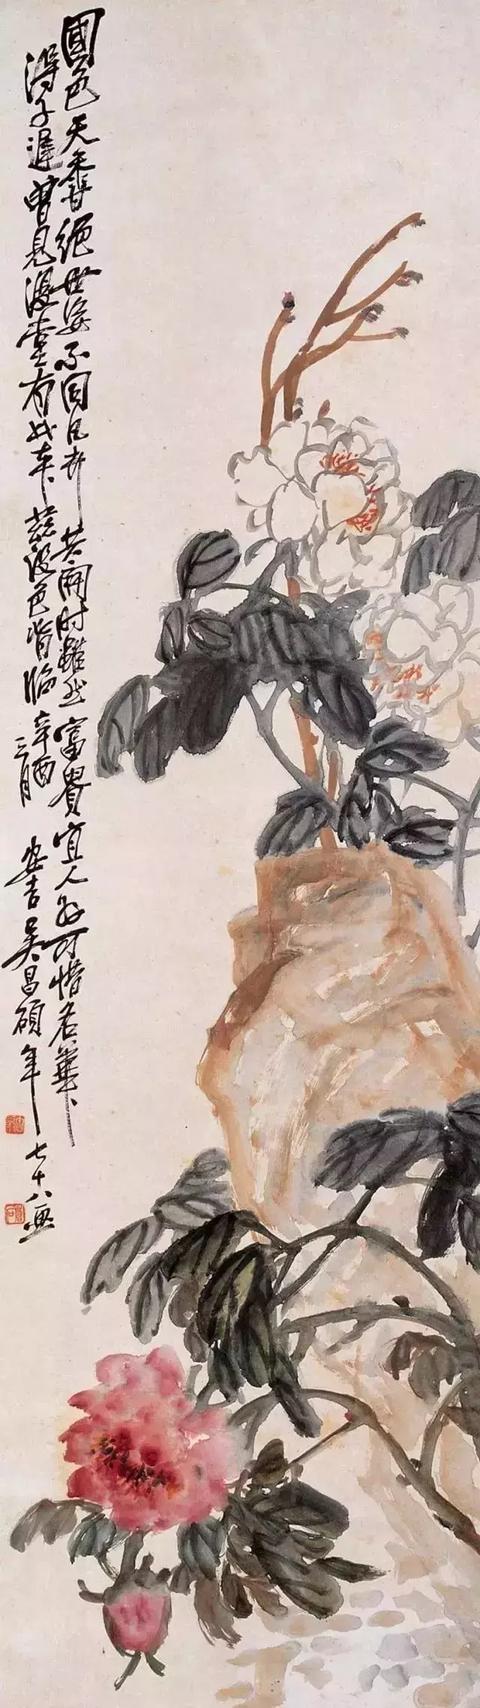 國色天香絕世姿不同凡卉共開時雖然富貴宜人可惜名華
得子遲曾見復堂有此本茲設色背臨辛酉
三月
安吉吳昌碩年七十八畫